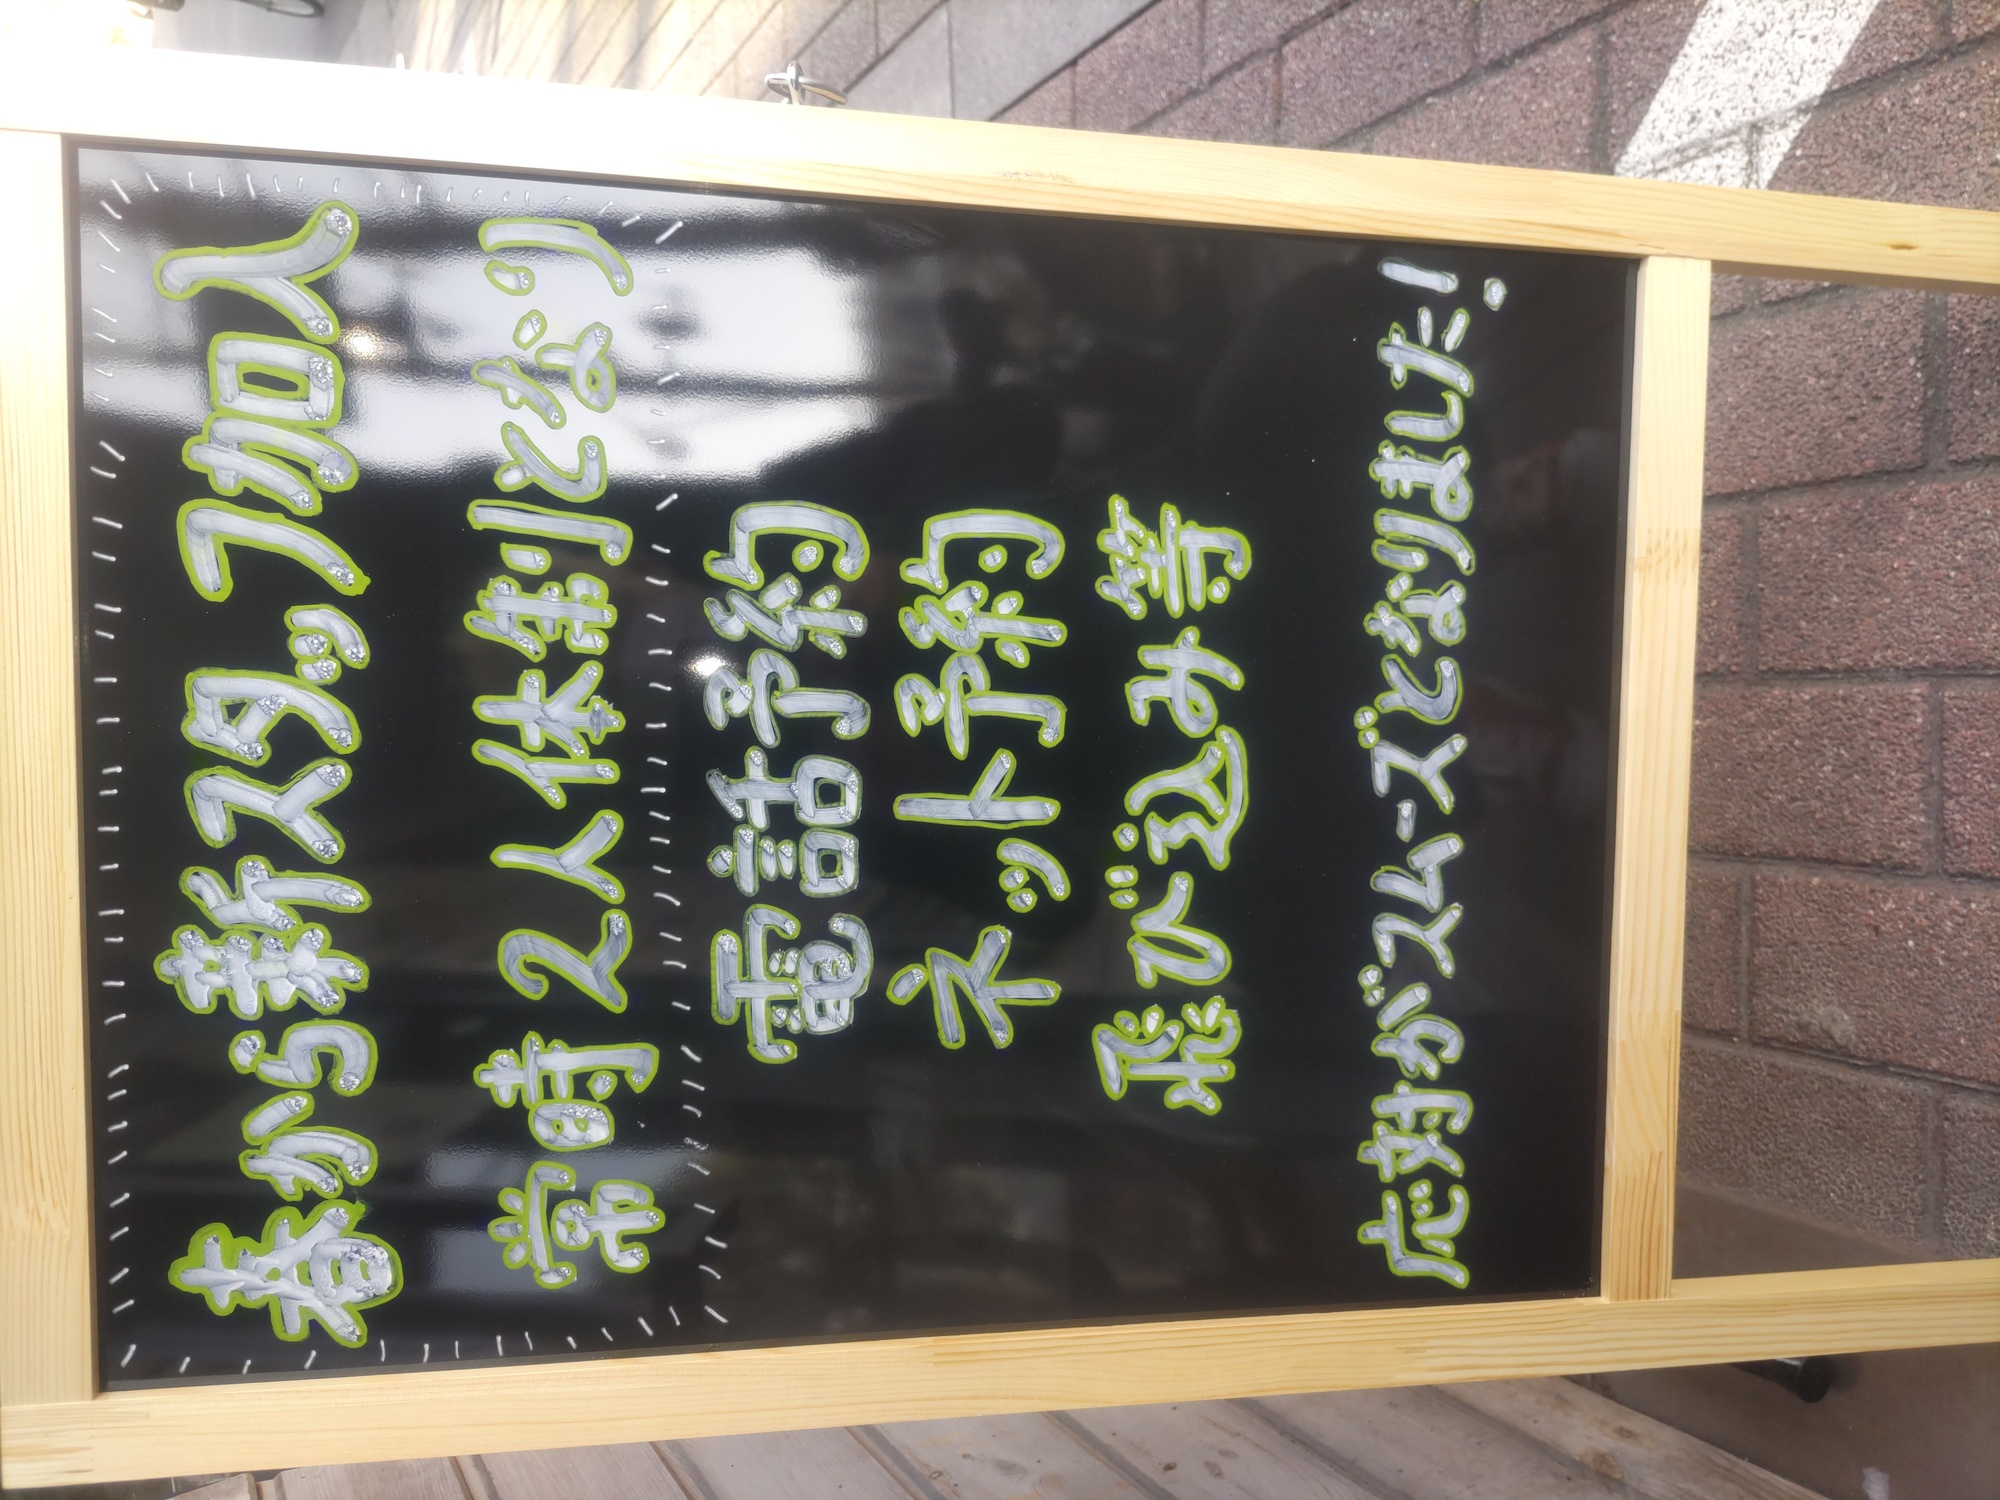 春から新スタッフ加入
常時2人体制となり
電話予約
ネット予約
飛び込み等
応対がスムーズとなりました!